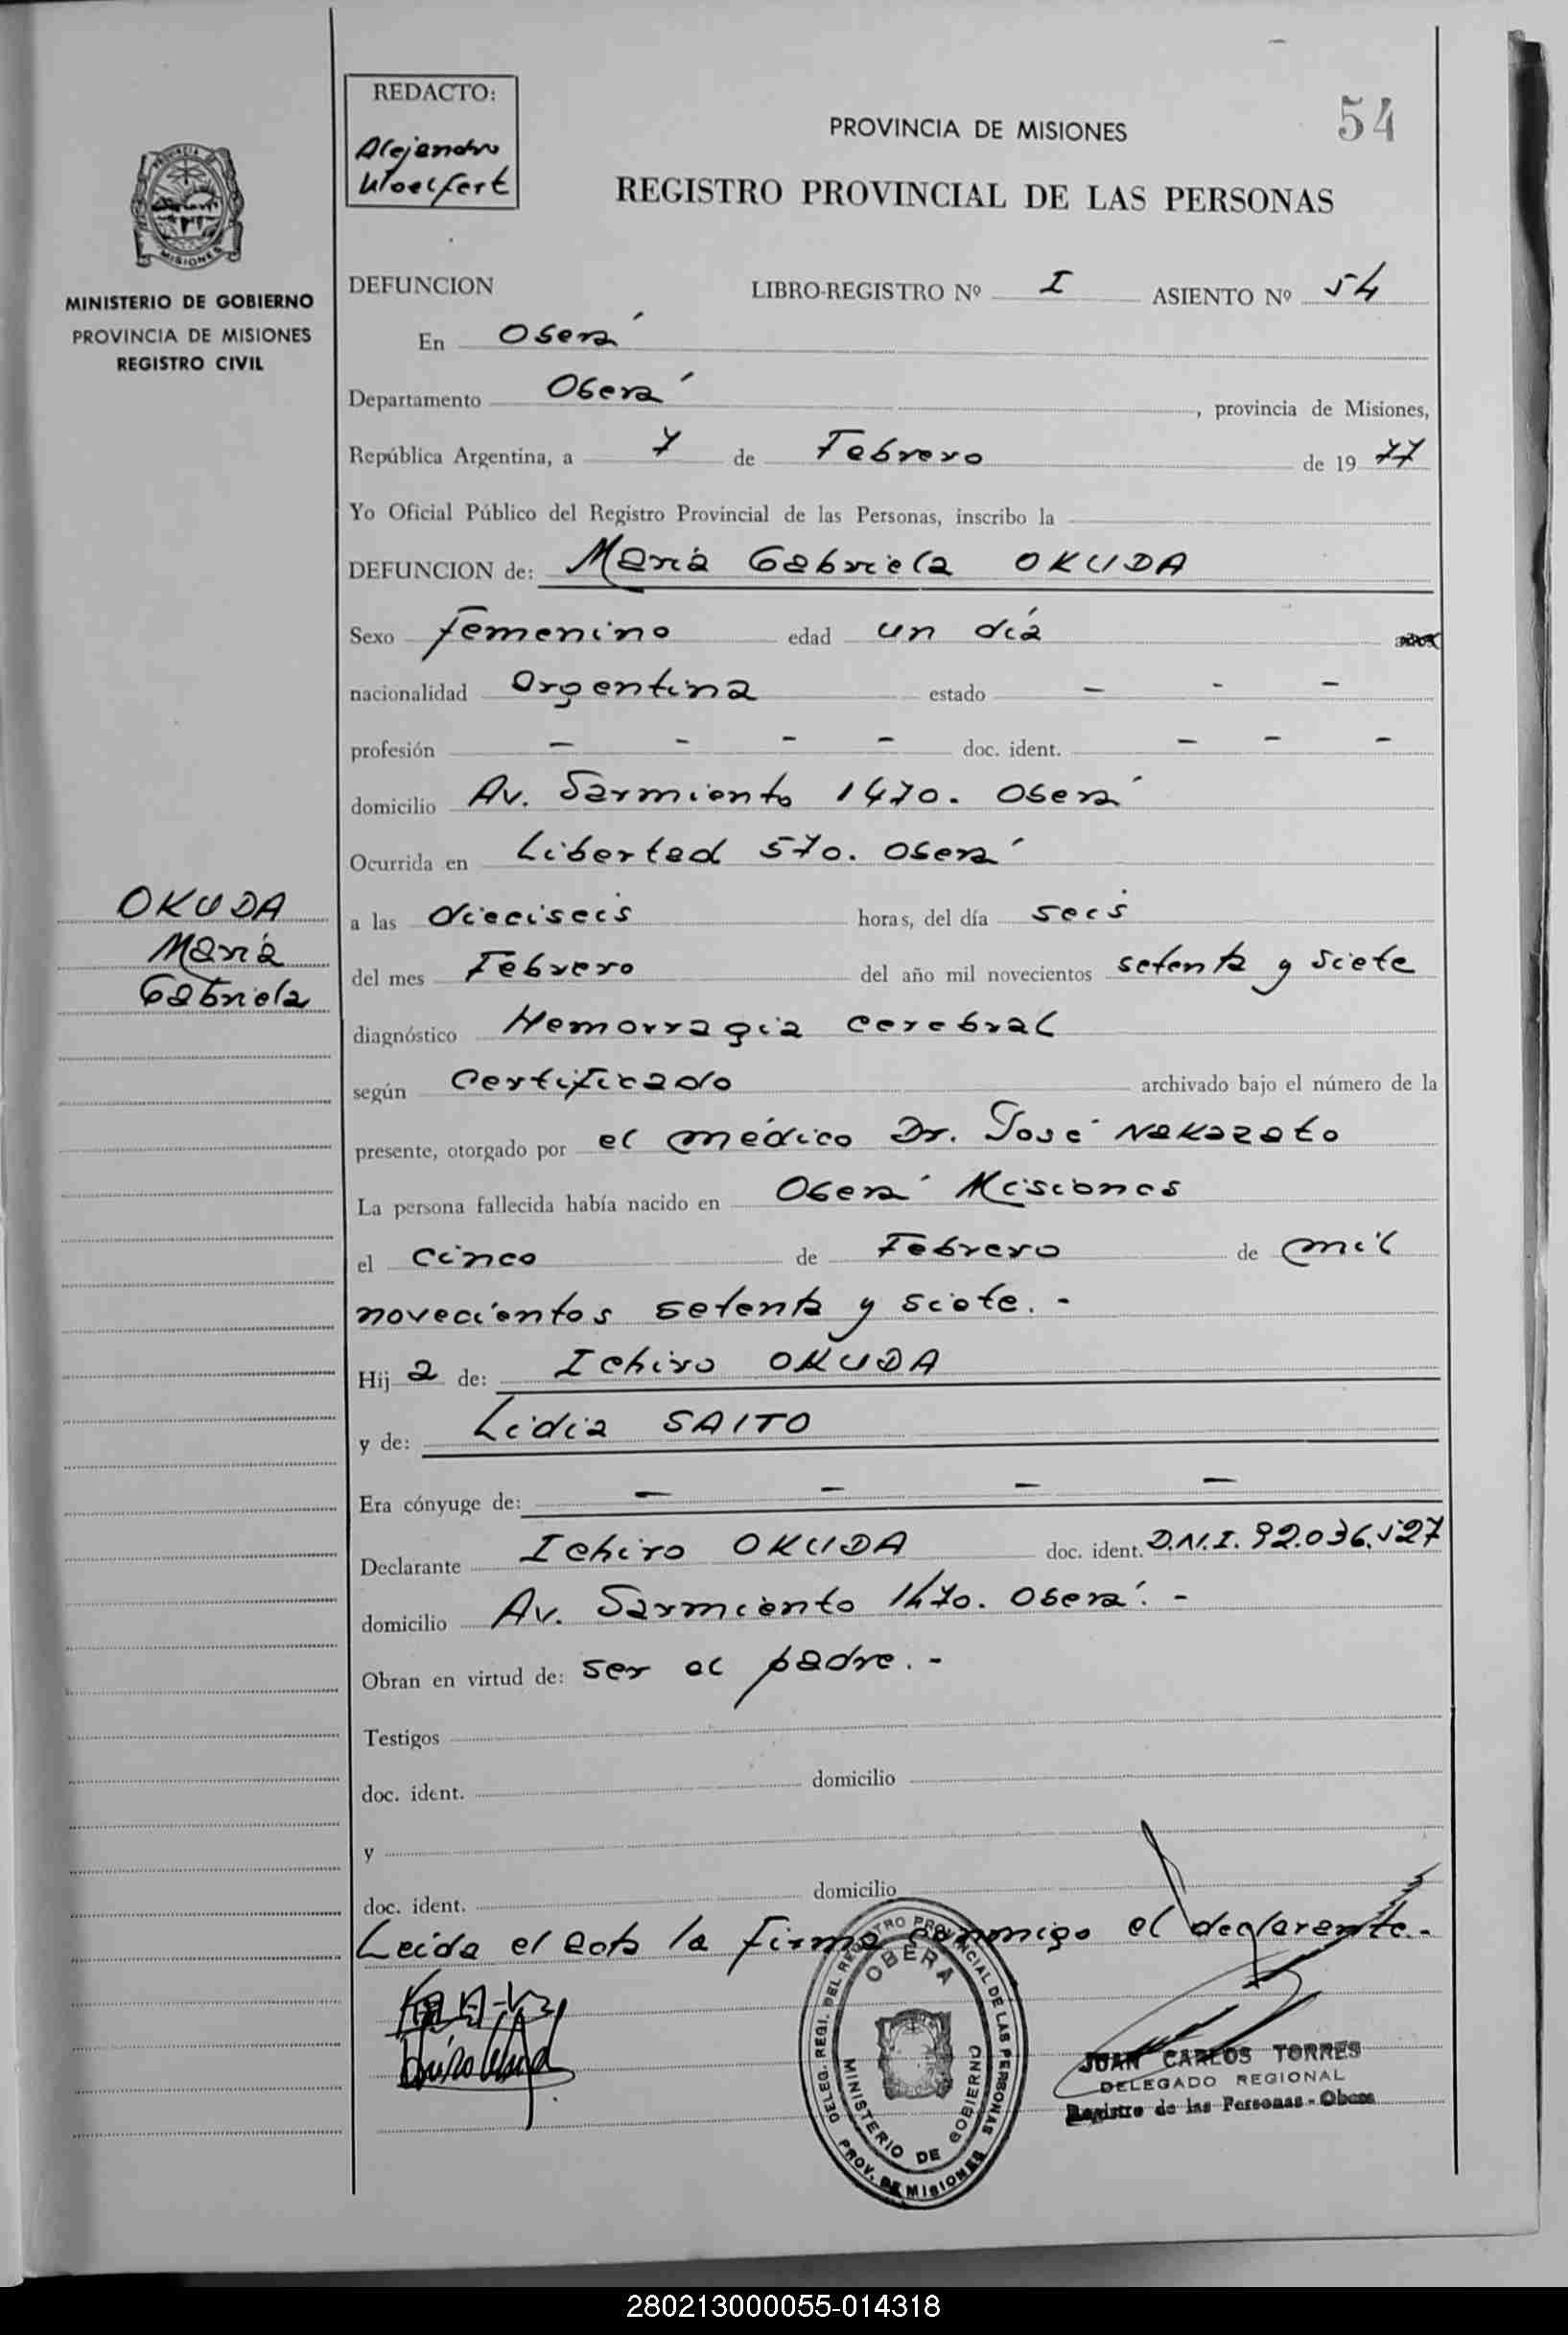 REDACTO:
Alejandro
Woelfert
54
PROVINCIA DE MISIONES
REGISTRO PROVINCIAL DE LAS PERSONAS
MISIONES
MINISTERIO DE GOBIERNO
PROVINCIA DE MISIONES
REGISTRO CIVIL
DEFUNCION LIBRO-REGISTRO Nº I ASIENTO Nº 54
En Oberá
Departamento Oberá, provincia de Misiones,
República Argentina, a 7 de Febrero de 1977
Yo Oficial Público del Registro Provincial de las Personas, inscribo la
DEFUNCION de: María Gabriela OKUDA
Sexo femenino edad un día
nacionalidad Argentina estado - - -
profesión - - - - doc. ident. - - -
domicilio Av. Sarmiento 1470. Oberá
Ocurrida en Libertad 570. Oberá
OKUDA
María
Gabriela
a las dieciseis horas, del día seis
del mes Febrero del año mil novecientos setenta y siete
diagnóstico Hemorragia cerebral
según certificado archivado bajo el número de la
presente, otorgado por el médico Dr. José Nakazato
La persona fallecida había nacido en Oberá Misiones
el cinco de Febrero de mil
novecientos setenta y siete.-
Hij a de: Ichiro OKUDA
y de: Lidia SAITO
Era cónyuge de: - - - -
Declarante Ichiro OKUDA doc. ident. D.N.I. 92.036.527
domicilio Av. Sarmiento 1470. Oberá.-
Obran en virtud de: ser el padre.-
Testigos
doc. ident. domicilio
y
doc. ident. domicilio
Leída el acta la firma conmigo el declarante.-
DELEG. REGI. DEL REGISTRO PROVINCIAL DE LAS PERSONAS
OBERA
MINISTERIO DE GOBIERNO
PROV. DE MISIONES
JUAN CARLOS TORRES
DELEGADO REGIONAL
Registro de las Personas - Obera
280213000055-014318